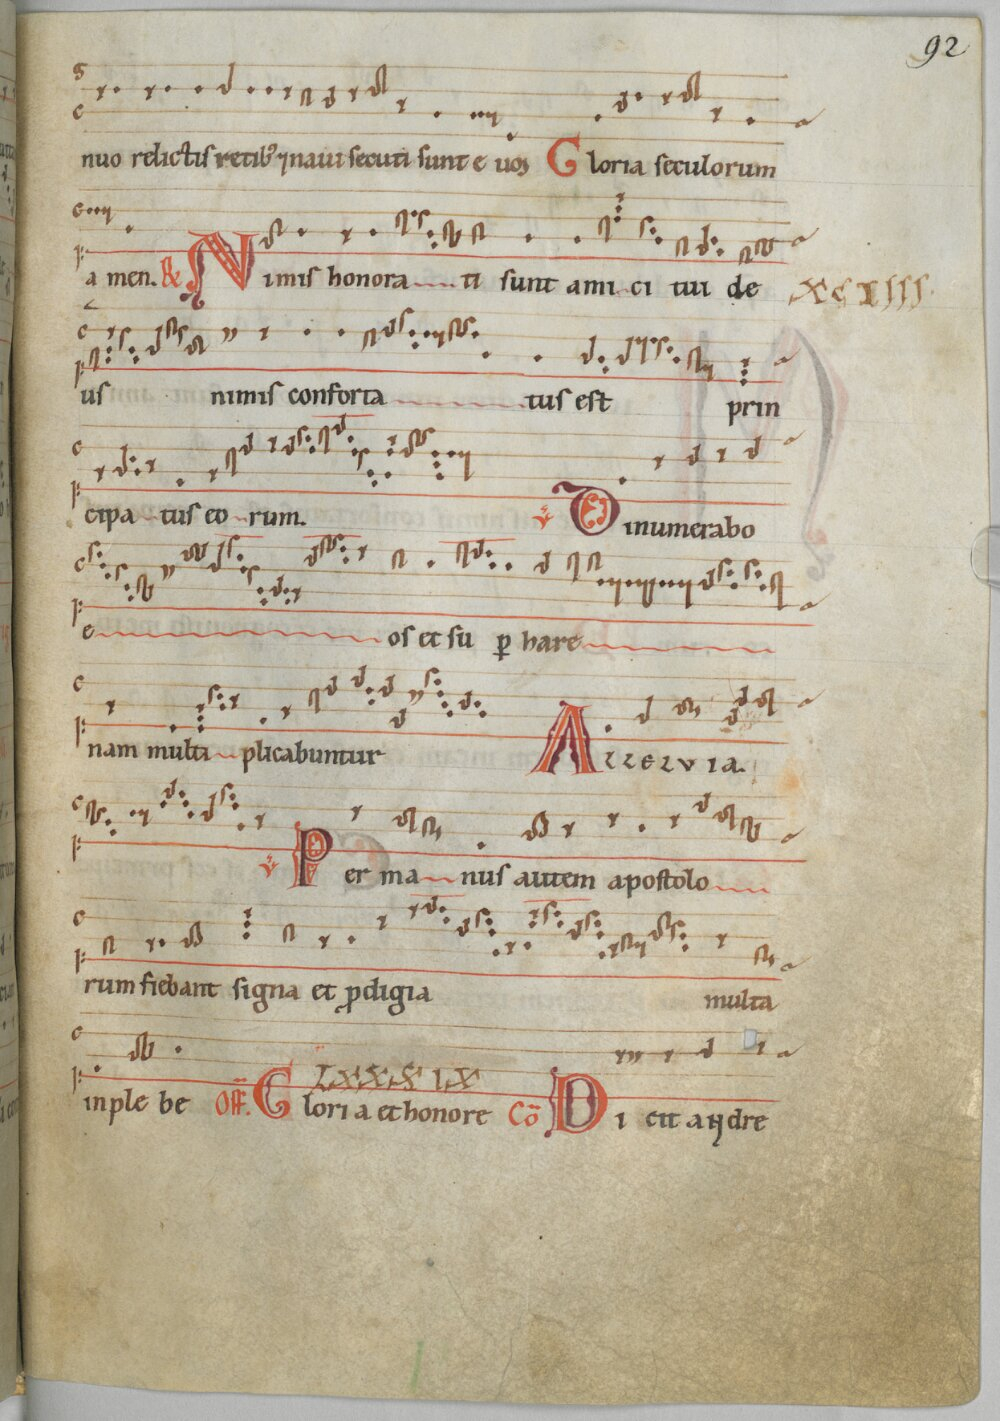 92
nuo relictis retib; ⁊ naui secuti sunt e uos Gloria seculorum
a men. & Nimis honora ti sunt ami ci tui de XCIIII
us nimis conforta tus est prin
cipa tus eo rum. ℣ Dinumerabo
e os et su ꝑ hare
nam multi plicabuntur Alleluia.
℣ Per ma nus autem apostolo
rum fiebant signa et ꝓdigia multa
LXXXIX
inple be Off. Glori a et honore Cō Di cit andre